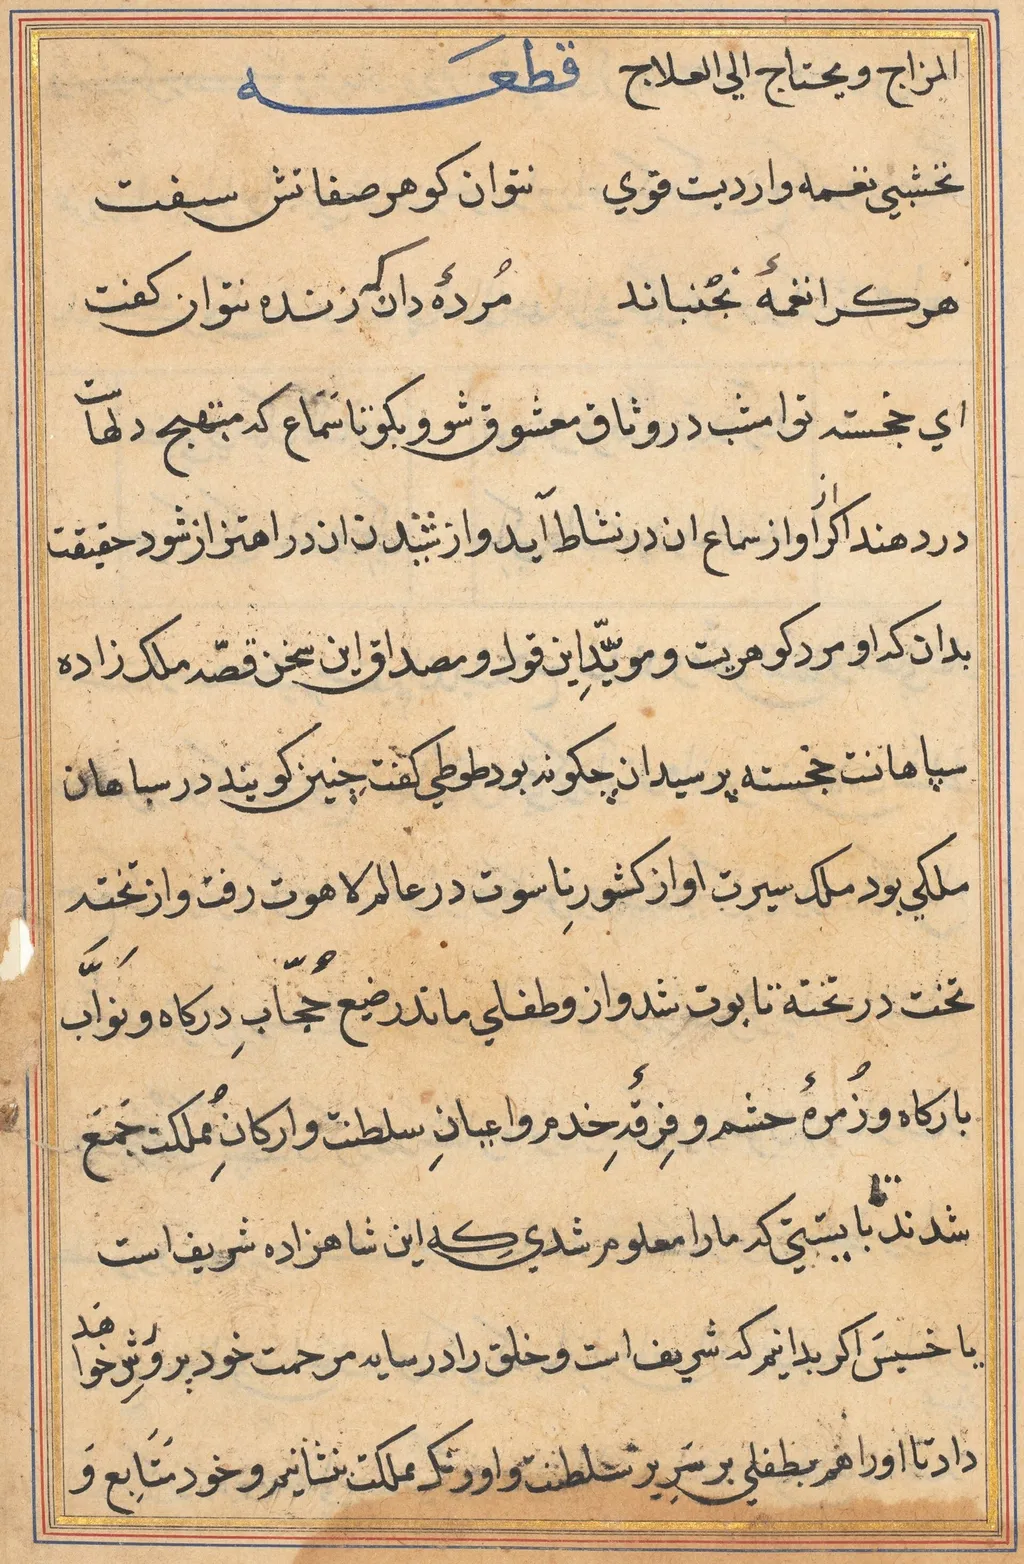 المزاج ويحتاج الي العلاج قطعه
نخشبي نغمه وارديت قوي نتوان كوهر صفاتش سفت
هر كرا نغمهٔ نجُنباند مُردهٔ دان كه زنده نتوان كفت
اي خجسته تو امشب در وثاق معشوق شو و بكو تا سَماع كه مبتهج دلهاست
در دهند اكر از اواز سماع ان در نشاط آيد و از شنيدن ان در اهتزاز شود حقيقت
بدان كه او مرد كوهريست و مويّدِ اين قول و مصداق اين سخن قصّه ملك زاده
سپاهانت خجسته پرسيد ان چكونه بود طوطي كفت چنين كويند در سباهان
ملكي بود ملك سيرت او از كشورِ ناسوت در عالم لاهوت رفت و از تخته
تخت در تخته تابوت شد و از و طفلي ماند رضيع حُجّابِ دركاه و نوَّاب
باركاه و زُمرهٔ حشم و فِرقهٔ خِدم و اعيانِ سلطنت و اركانِ مُملكت جَمَع
شدند تا بايستي كه ما را معلوم شدي كِه اين شاهزاده شريف است
يا خسيسَ اكر بدانيم كه شريف است و خلق را در سايه مرحمت خود پروَرِش خواهد
داد تا او را هم بطفلي بر سَرِير سلطنت و اورنك مملكت بنشانيم و خود مَتَابِع وَ